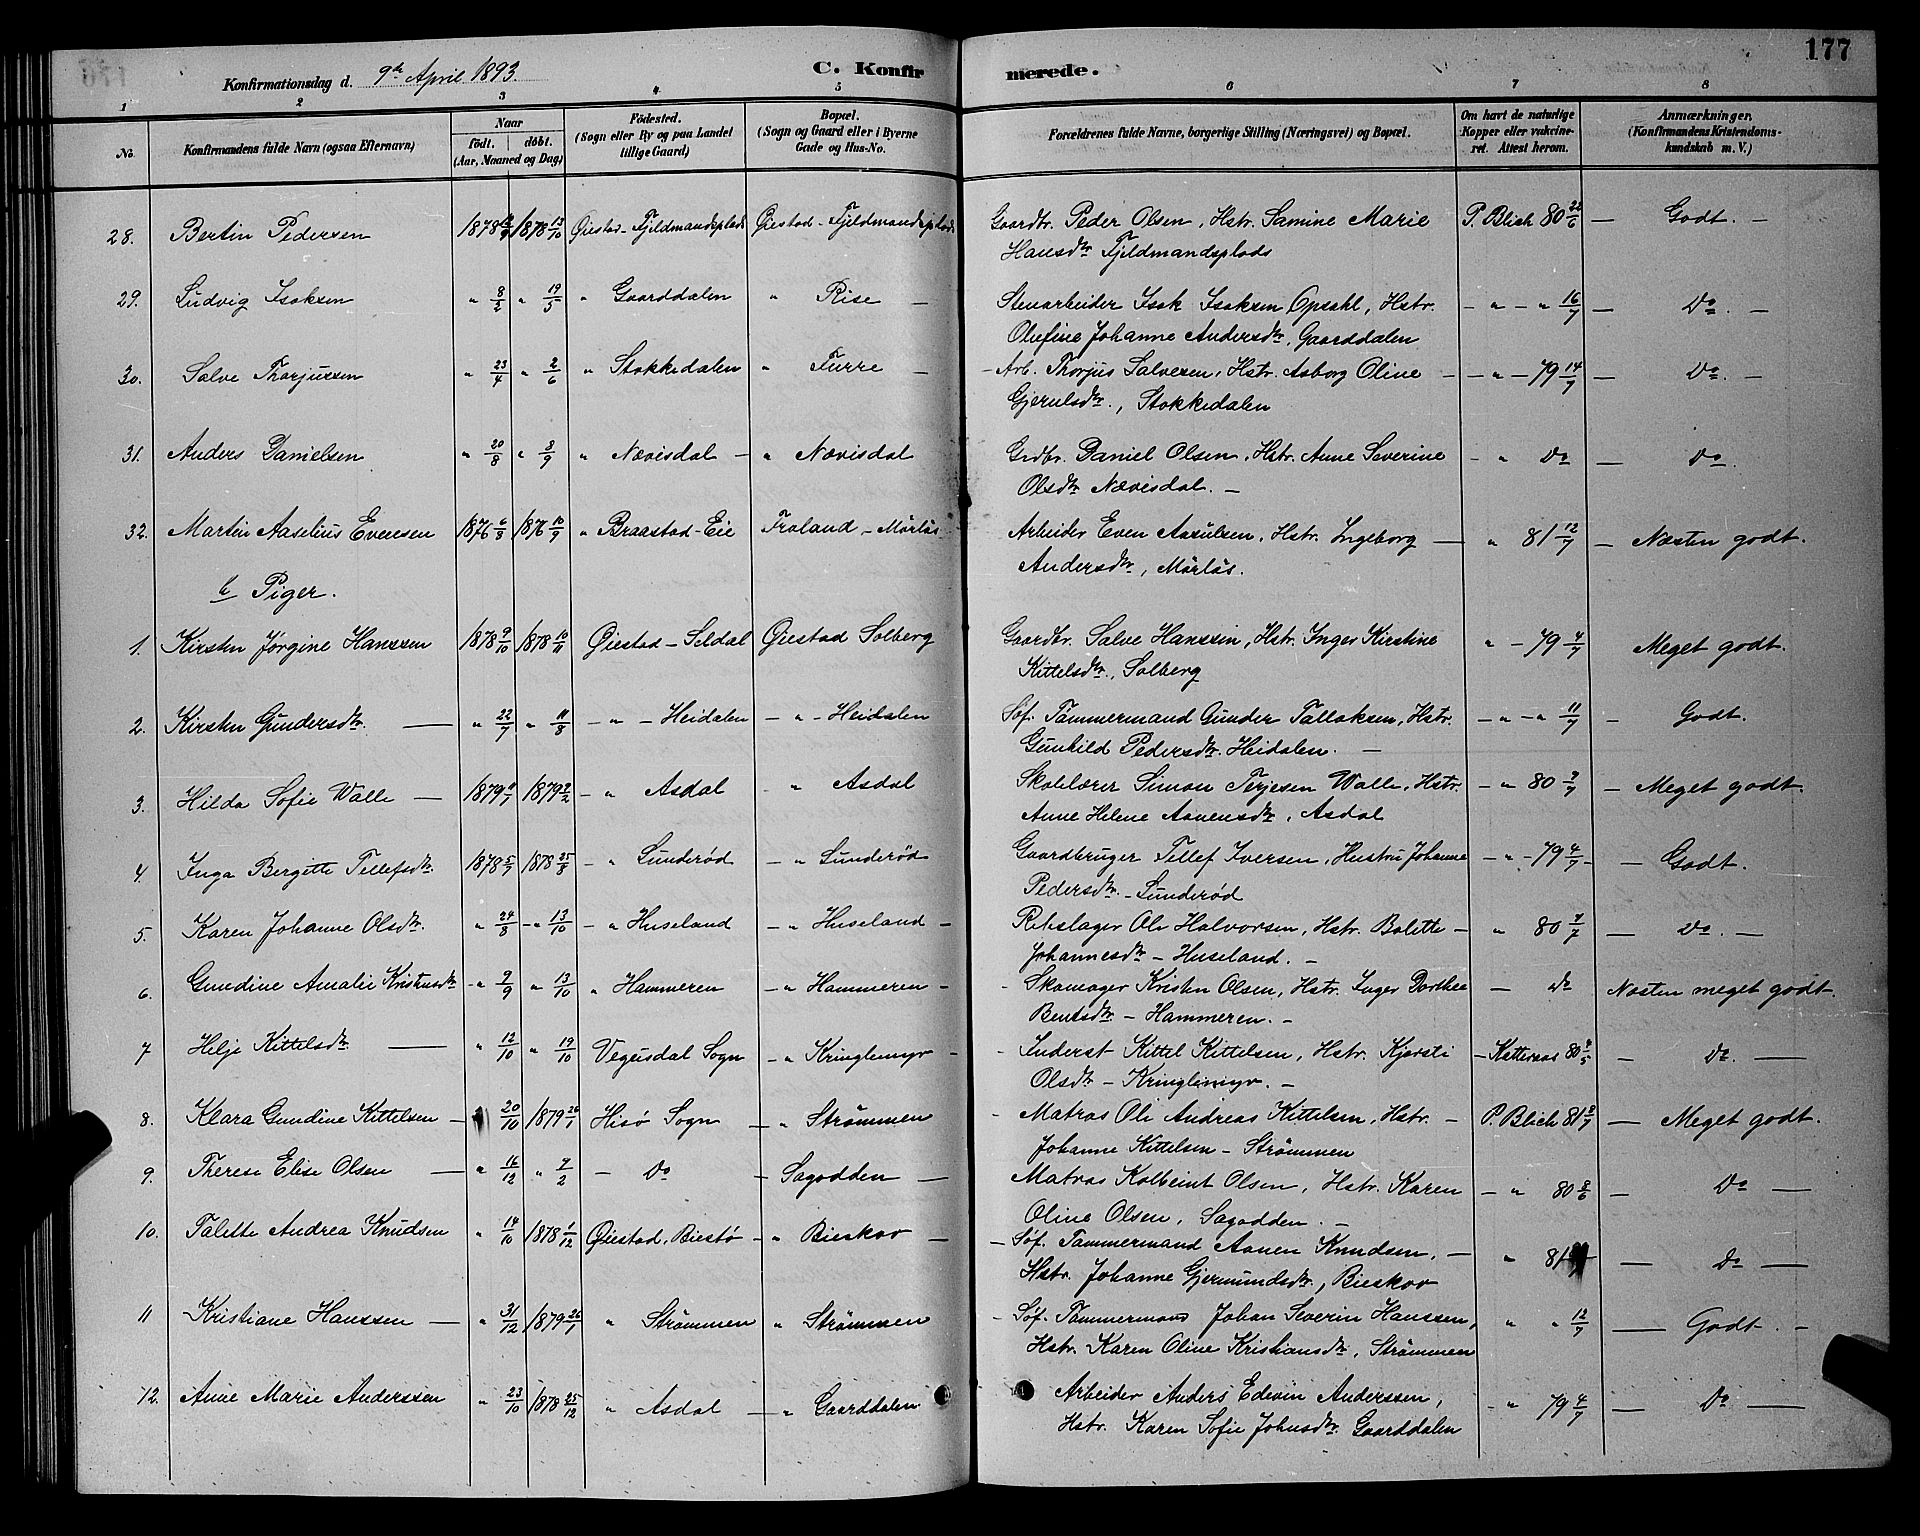 177
Konfirmationsdag d. 9de April 1893.
C. Konfirmerede.
1 2 3 4 5 6 7 8
No. Konfirmandens fulde Navn (ogsaa Efternavn) Naar født. døbt. (Aar, Maaned og Dag) Fødested. (Sogn eller By og paa Landet tillige Gaard) Bopæl. (Sogn og Gaard eller i Byerne Gade og Hus-No. Forældrenes fulde Navne, borgerlige Stilling (Næringsvei) og Bopæl. Om havt de naturlige Kopper eller vakcineret. Attest herom. Anmærkninger. (Konfirmandens Kristendomskundskab m. V.)
28. Bertin Pedersen 1878 1878 13/10 Øiestad - Fjeldmandsplads Øiestad - Fjeldmandsplads Gaardbr. Peder Olsen, Hstr. Samine Marie P. Blich 80 22/6 — Godt. —
Hansdtr Fjeldmandsplads
29. Ludvig Isaksen " 8/2 " 19/5 " Gaarddalen " Rise — Stenarbeider Isak Isaksen Opsahl, Hstr. - " - " 16/7 — Do. —
Olefine Johanne Andersdtr, Gaarddalen
30. Salve Thorjussen " 23/4 " 2/6 " Stokkedalen " Furre — - Arb. Thorjus Salvesen, Hstr. Asborg Oline - - " - 79 14/7 — Do. —
Gjerulsdtr., Stokkedalen
31. Anders Danielsen " 20/8 " 8/9 " Nævisdal — " Nævisdal Grdbr. Daniel Olsen, Hstr. Anne Severine - " do — Do.
Olsdtr Nævisdal. —
32. Martin Aaselius Evensen 1876 6/8 1876 10/9 " Braastad - Eie Froland - Mørlås Arbeider Even Aasulsen, Hstr. Ingeborg — " 81 12/7 — Næsten godt.
Andersdtr, Mørlås.
b Piger.
1. Kirsten Jørgine Hanssen 1878 9/10 1878 10/11 Øiestad - Seldal Øiestad Solberg Gaardbr. Salve Hanssen, Hstr. Inger Kirstine " - 79 4/7 Meget godt.
Kittelsdtr., Solberg
2. Kirsten Gundersdtr. — " 22/7 " 11/8 - " - Heidalen - " - Heidalen Søf. Tømmermand Gunder Tallaksen, Hstr. - " - " 11/7 — Godt.
Gunhild Pedersdtr. Heidalen. —
3. Hilda Sofie Walle — 1879 1879 2/2 - " Asdal " Asdal Skolelærer Simon Terjesen Walle, Hstr. - " 80 — Meget godt.
Anne Helene Aanensdtr, Asdal
4. Inga Bergitte Tellefsdtr. 1878 5/7 1878 25/8 - " Lunderød - " Lunderød Gaardbruger Tellef Iversen, Hustru Johanne - " - 79 4/7 - — Godt.
Pedersdtr. - Lunderød
5. Karen Johanne Olsdtr. " 24/8 - " 13/10 - " Huseland - " Huseland - Rebslager Ole Halvorsen, Hstr. Bolette - " 80 7/7 — do. —
Johannesdtr - Huseland. —
6. Gundine Amalie Kristensdtr - " 9/9 " 13/10 " Hammeren - " Hammeren - - Skomager Kristen Olsen, Hstr. Inger Dorthea — do Næsten meget godt.
Bentsdtr - Hammeren. —
7 Helje Kittelsdtr — " 12/10 " 19/10 Vegusdal Sogn - " Kringlemyr - - Inderst Kittel Kittelsen, Hstr. Kjersti - Katteraas 80 — Do. —
Olsdtr - Kringlemyr. —
8. Klara Gundine Kittelsen — 20/10 1879 26/1 Hisø Sogn - " Strømmen - Matros Ole Andreas Kittelsen, Hstr. - P. Blich 81 — Meget godt.
Johanne Kittelsen - Strømmen
9. Therese Elise Olsen — " 16/12 " 2/2 - Do - Sagodden — Matros Kolbeint Olsen, Hstr. Karen - " 80 8/6 — Do —
Oline Olsen, Sagodden. —
10. Talette Andrea Knudsen " 14/10 1878 1/12 Øiestad, Biestø - " Bieskov — - Søf. Tømmermand Aanen Knudsen, — " 81 — Do —
Hstr. Johanne Gjermundsdtr, Bieskov
11 Kristiane Hanssen — " 31/12 1879 26/1 " Strømmen " Strømmen - Søf. Tømmermand Johan Severin Hanssen, " " 12/7 — Godt. —
Hstr. Karen Oline Kristiansdtr, Strømmen
12. Anne Marie Anderssen " 23/10 1878 25/12 " Asdal — " Gaarddalen Arbeider Anders Edevin Anderssen, - " 79 4/7 — Do —
Hstr. Karen Sofie Johnsdtr. Gaarddalen